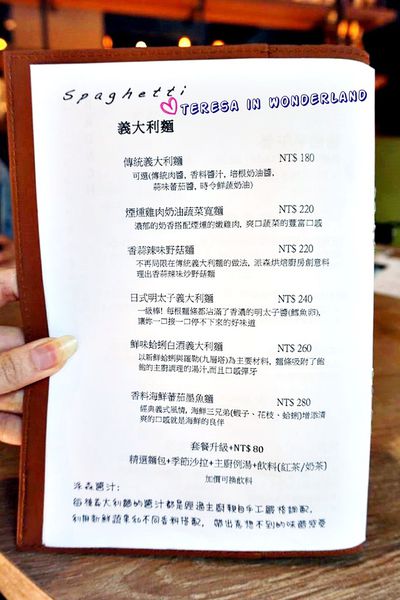 Spaghetti
TERESA IN WONDERLAND
義大利麵
傳統義大利麵 NT$ 180
可選(傳統肉醬, 香料醬汁, 培根奶油醬,
蒜味蕃茄醬, 時令鮮蔬奶油)
煙燻雞肉奶油蔬菜寬麵 NT$ 220
濃郁的奶香搭配煙燻的嫩雞肉, 爽口蔬菜的豐富口感
香蒜辣味野菇麵 NT$ 220
不再侷限在傳統義大利麵的做法, 派森烘焙廚房創意料
理出香蒜辣味炒野菇麵
日式明太子義大利麵 NT$ 240
一級棒! 每根麵條都沾滿了香濃的明太子醬(鱈魚卵),
讓妳一口接一口停不下來的好味道
鮮味蛤蜊白酒義大利麵 NT$ 260
以新鮮蛤蜊與羅勒(九層塔)為主要材料, 麵條吸附了飽
飽的主廚調理的湯汁,而且口感彈牙
香料海鮮蕃茄墨魚麵 NT$ 280
經典義式風情, 海鮮三兄弟(蝦子、花枝、蛤蜊)增添清
爽的口感就是海鮮的良伴
套餐升級+NT$ 80
精選麵包+季節沙拉+主廚例湯+飲料(紅茶/奶茶)
加價可換飲料
派森醬汁:
每種義大利麵的醬汁都是經過主廚親自手工嚴格調配,
利用新鮮蔬果和不同香料搭配, 帶出意想不到的味蕾感受